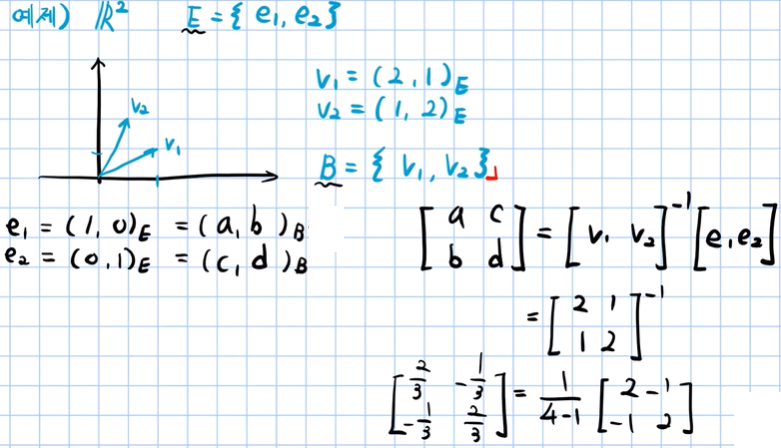 예제) ℝ² E = { e₁, e₂ }
v₂
v₁
v₁ = (2, 1)_E
v₂ = (1, 2)_E
B = { v₁, v₂ }
e₁ = (1, 0)_E = (a, b)_B
e₂ = (0, 1)_E = (c, d)_B
[a c; b d] = [v₁ v₂]⁻¹ [e₁ e₂]
= [2 1; 1 2]⁻¹
[2/3 -1/3; -1/3 2/3] = 1/(4-1) [2 -1; -1 2]